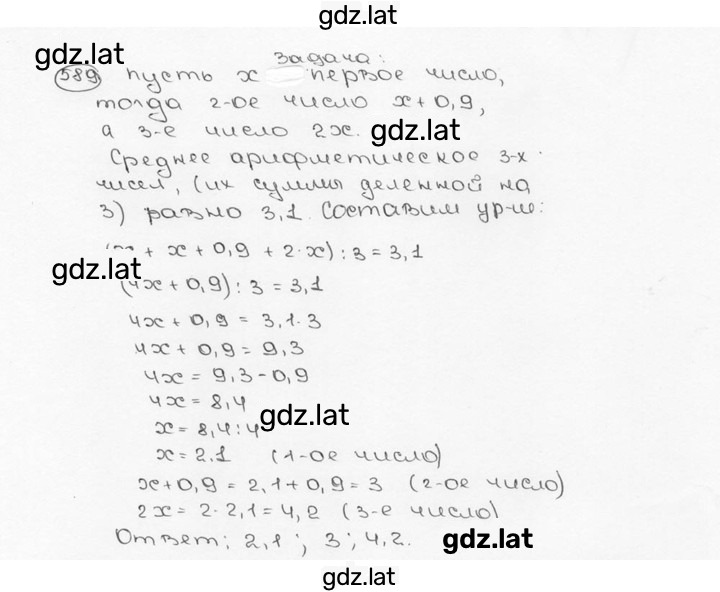 gdz.lat
gdz.lat
Задача:
589 Пусть x первое число,
тогда 2-ое число x+0,9,
а 3-е число 2x. gdz.lat
Среднее арифметическое 3-х
чисел, (их суммы деленной на
3) равно 3,1. Составим ур-ие:
+ x + 0,9 + 2·x) : 3 = 3,1
gdz.lat
(4x + 0,9) : 3 = 3,1
4x + 0,9 = 3,1·3
4x + 0,9 = 9,3
4x = 9,3 - 0,9
4x = 8,4
gdz.lat
x = 8,4 : 4
x = 2.1 (1-ое число)
x+0,9 = 2,1+0,9 = 3 (2-ое число)
2x = 2·2,1 = 4,2 (3-е число)
Ответ: 2,1 ; 3 ; 4,2. gdz.lat
gdz.lat